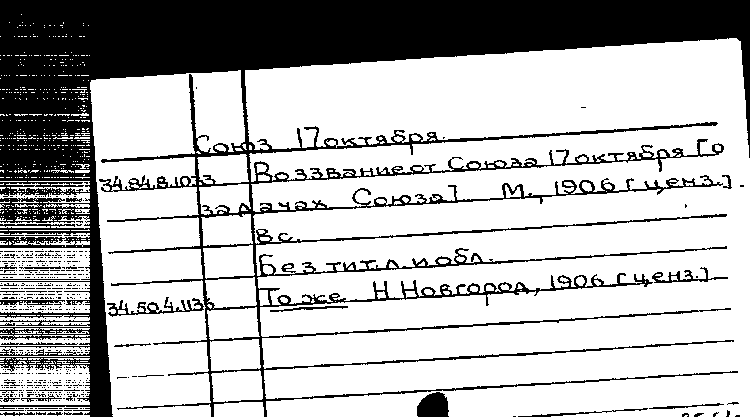 Союз 17 октября.
34.84.8.1033 Воззвание от Союза 17 октября [о
задачах Союза]. М., 1906 [ценз.].
8 с.
Без тит. л. и обл.
34.50.4.1136 То же Н Новгород, 1906 [ценз.]